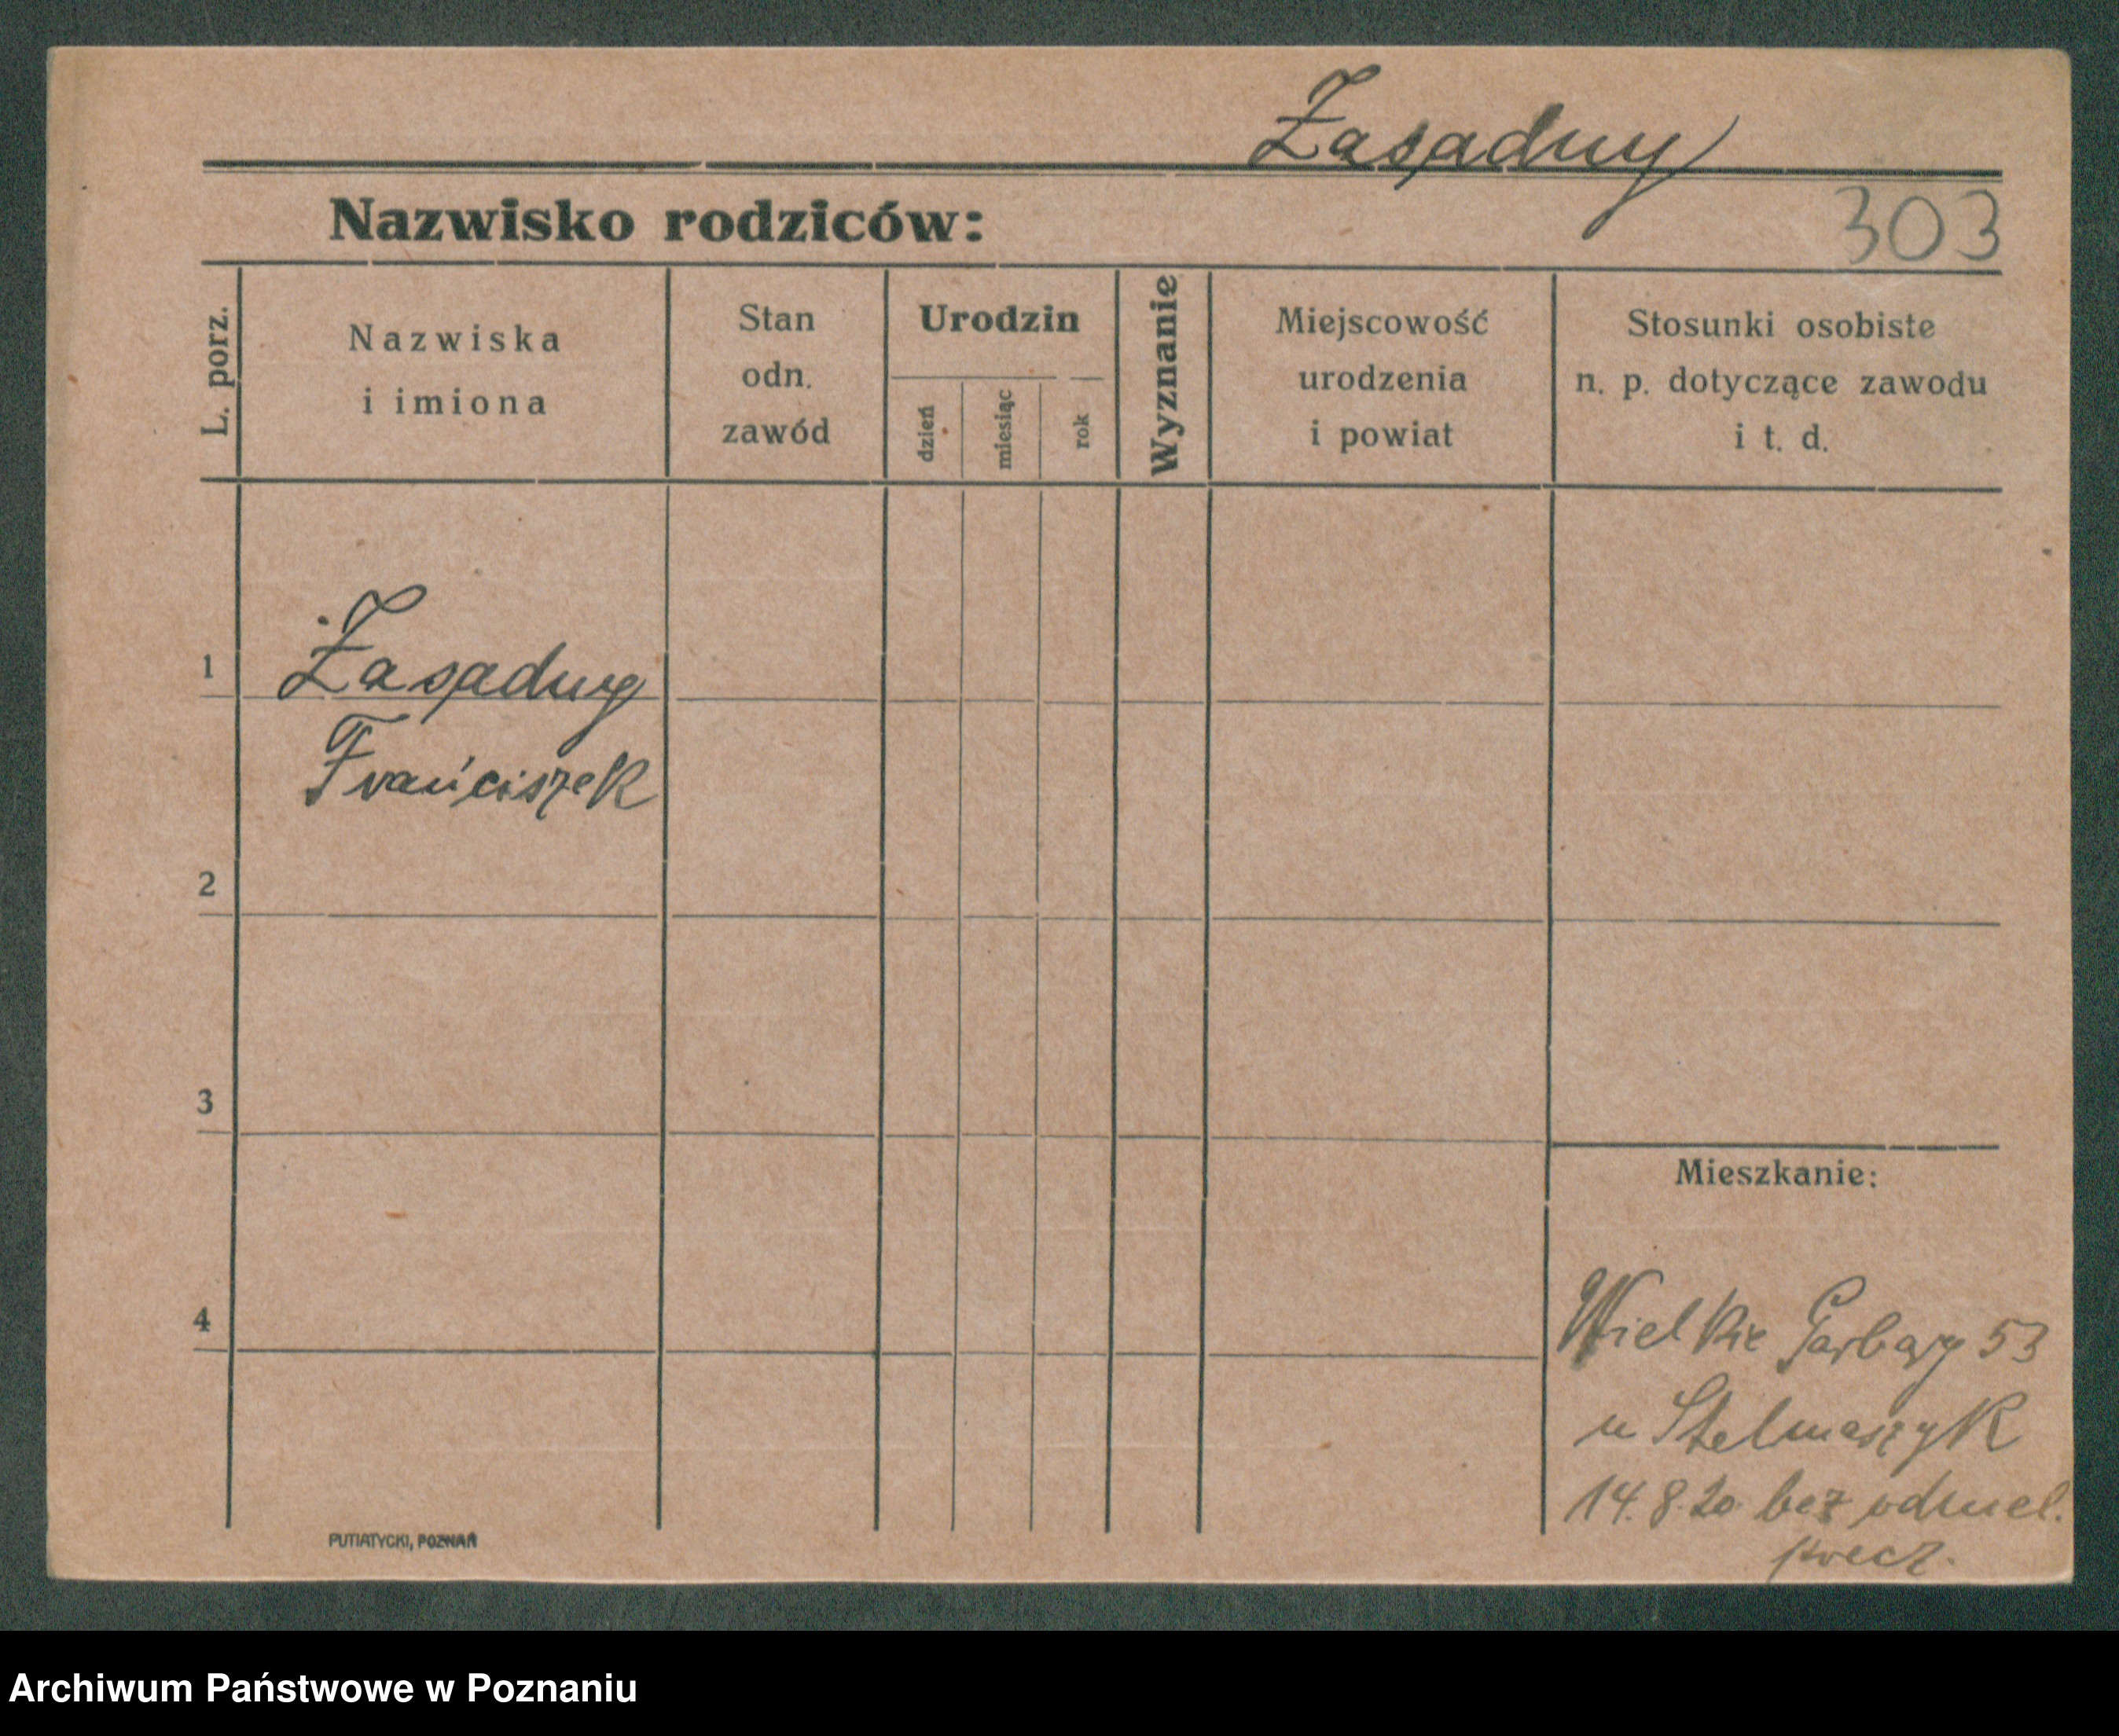 Zasadny
Nazwisko rodziców:
303
L. porz.
Nazwiska
i imiona
Stan
odn.
zawód
Urodzin
dzień
miesiąc
rok
Wyznanie
Miejscowość
urodzenia
i powiat
Stosunki osobiste
n. p. dotyczące zawodu
i t. d.
1
Żasadny
Frańciszek
2
3
4
Mieszkanie:
Wielkie Garbary 53
u Stelmaszyk
14.8.20 bez odmel.
precz.
PUTIATYCKI, POZNAŃ
Archiwum Państwowe w Poznaniu